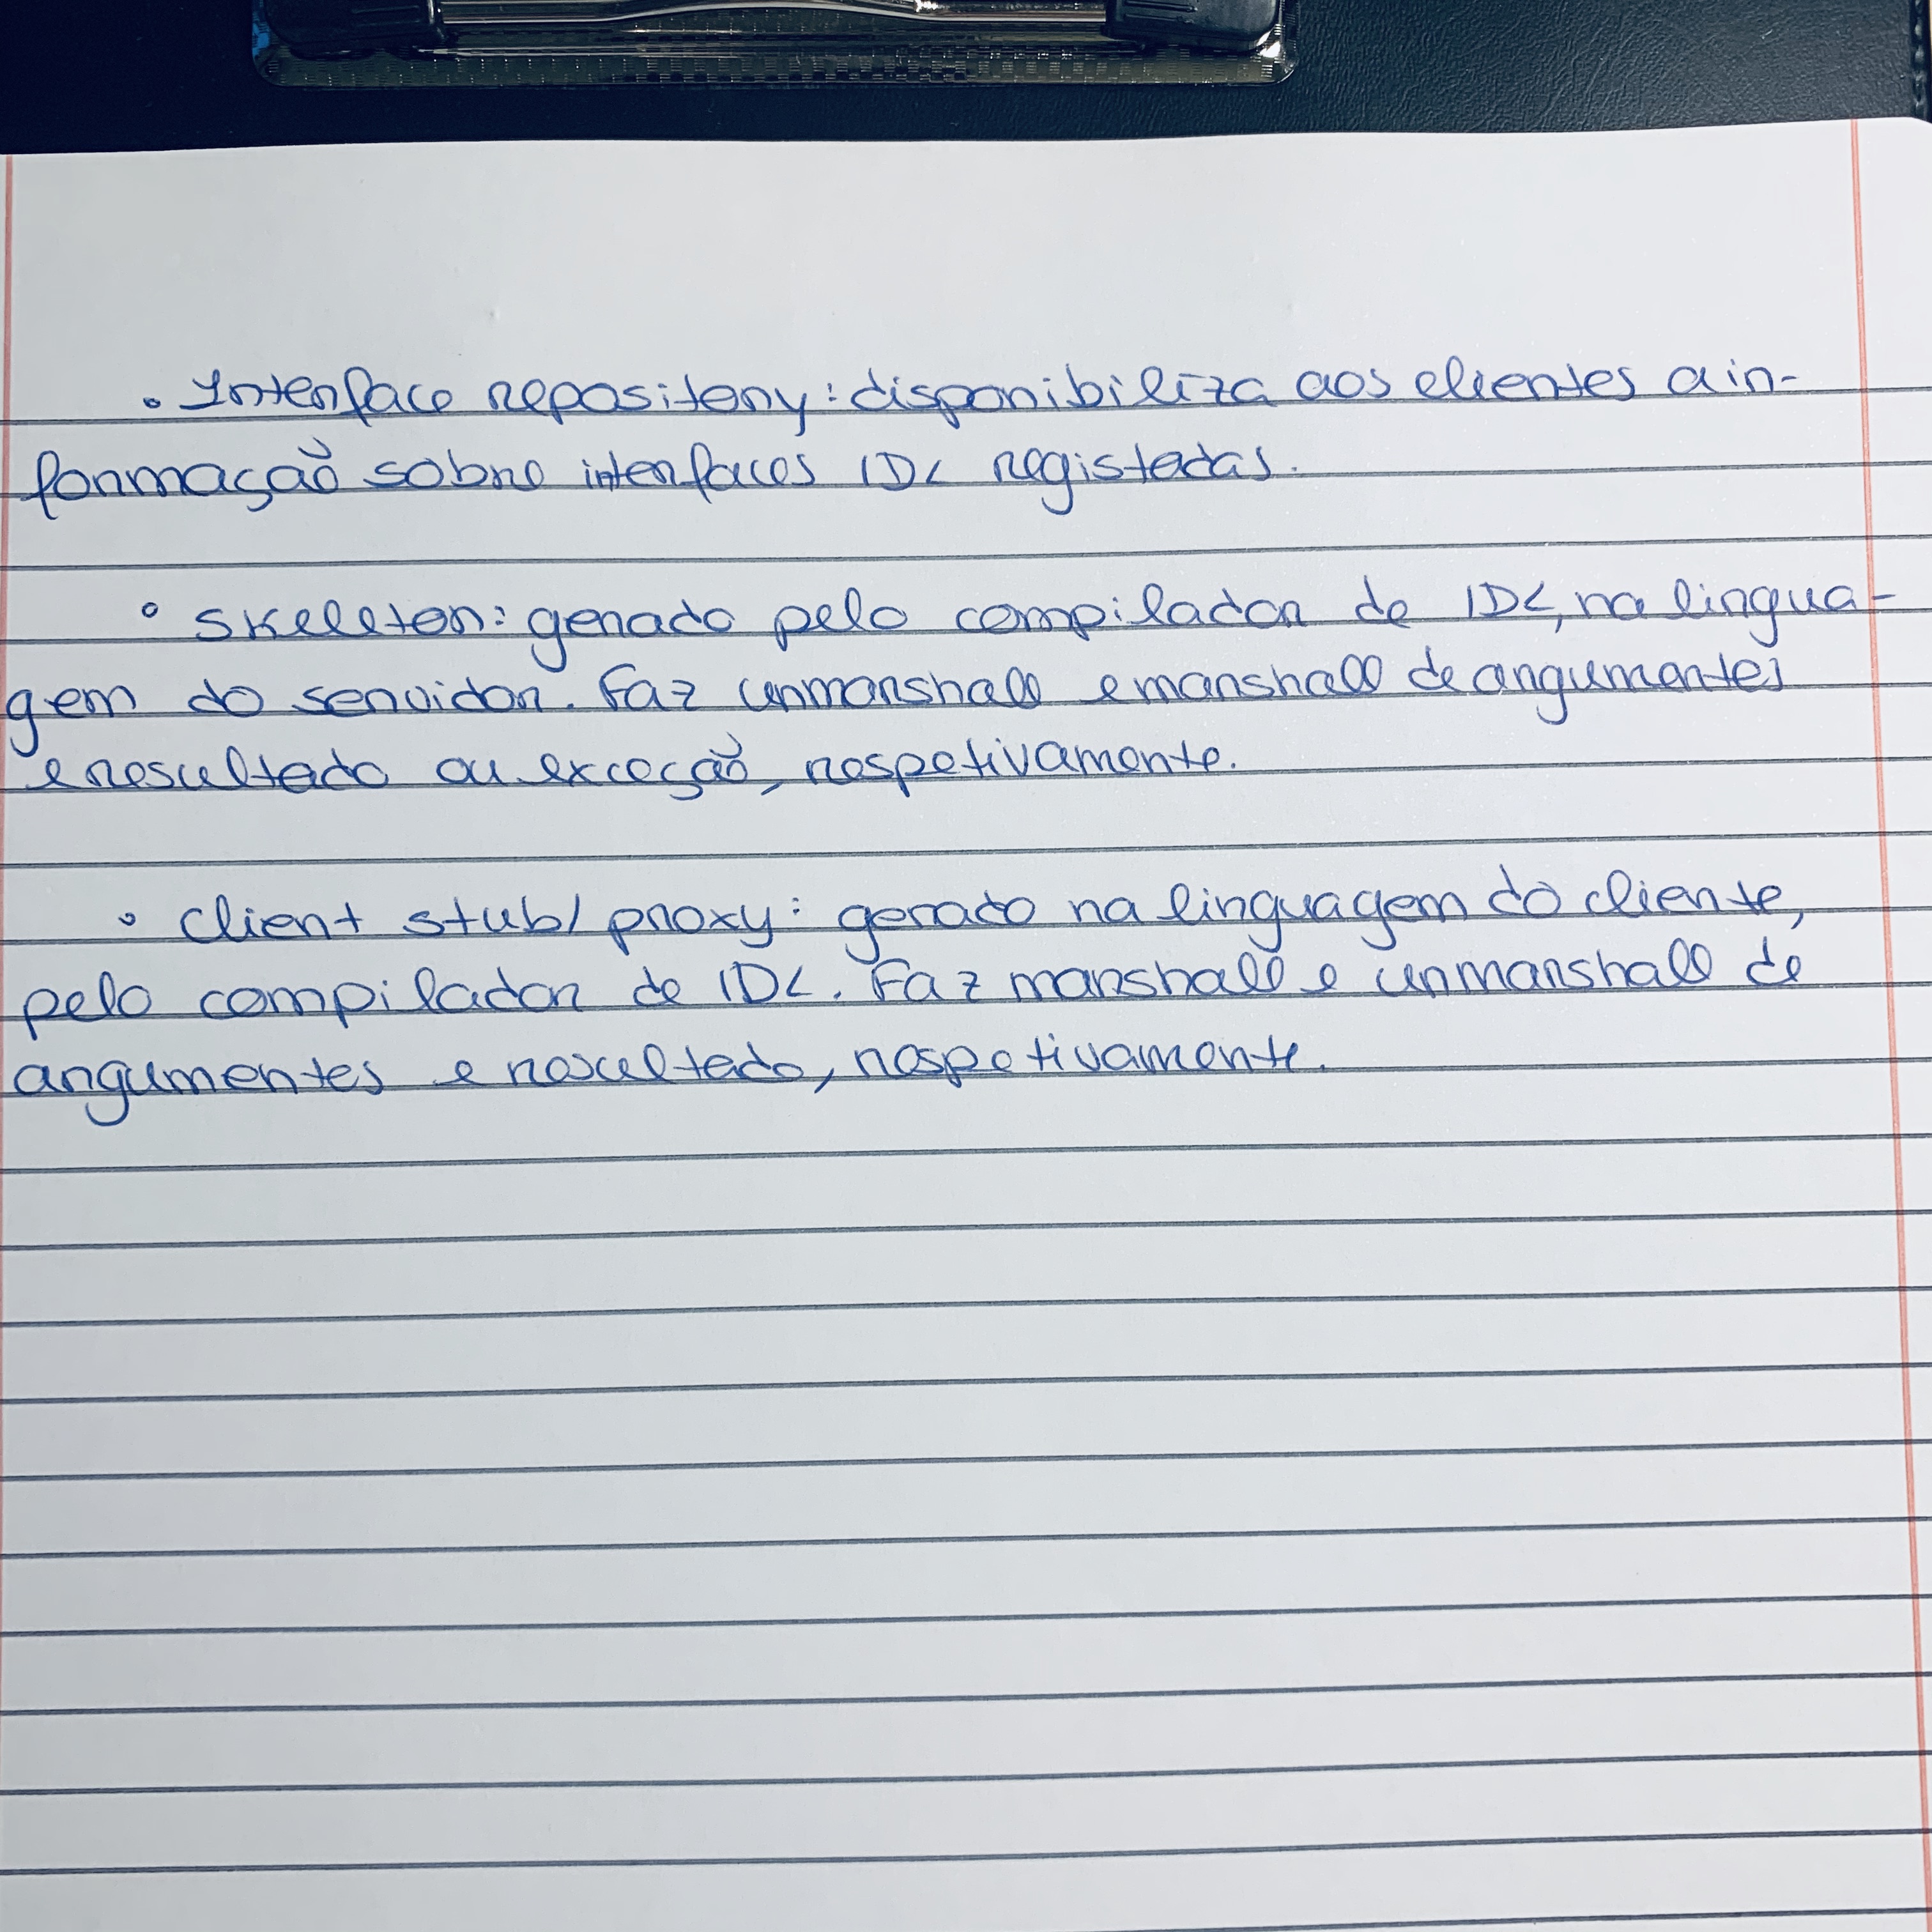 • Interface repository: disponibiliza aos clientes a in-
formação sobre interfaces IDL registadas.
• Skeleton: gerado pelo compilador de IDL, na lingua-
gem do servidor. Faz unmarshall e marshall de argumentos
e resultado ou exceção, respetivamente.
• Client stub/ proxy: gerado na linguagem do cliente,
pelo compilador de IDL. Faz marshall e unmarshall de
argumentos e resultado, respetivamente.